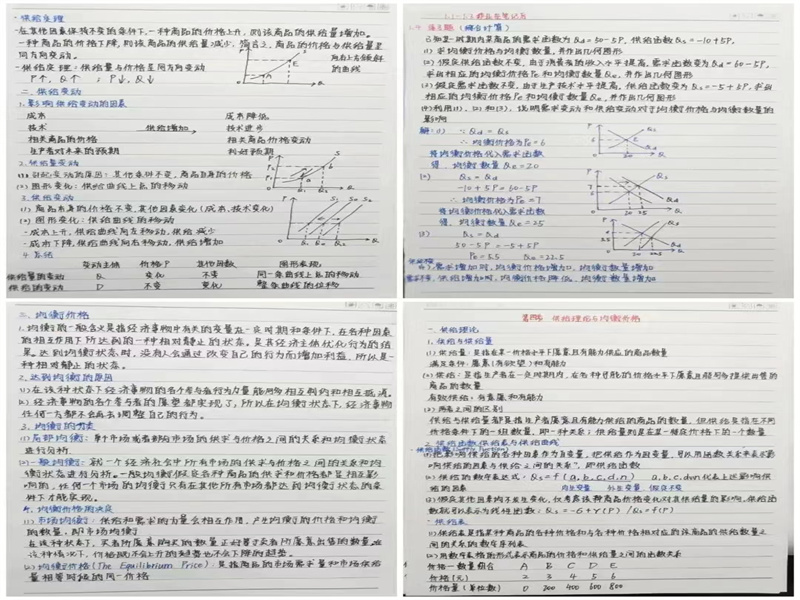 ·供给定理
·在其他因素保持不变的条件下,一种商品的价格上升,则该商品的供给量增加。
一种商品的价格下降,则该商品的供给量减少。简言之,商品的价格与供给量呈
同方向变动。
·供给定理:供给量与价格呈同方向变动
P↑, Q↑ ; P↓, Q↓
向右上方倾斜
的曲线
二. 供给变动
1. 影响供给变动的因素
成本 成本降低
技术 供给增加 技术进步
相关商品的价格 相关商品价格变动
生产者对未来的预期 利好预期
2. 供给量变动
(1) 引起变动的原因:其他条件不变,商品自身的价格
(2) 图形变化:供给曲线上点的移动
3. 供给变动
(1) 商品本身的价格不变,其他因素变化(成本、技术变化)
(2) 图形变化:供给曲线的移动
·成本上升,供给曲线向左移动,供给减少
·成本下降,供给曲线向右移动,供给增加
4. 总结
变动主体 价格P 其他因数 图形表现
供给量的变动 Q 变化 不变 同一条曲线上点的移动
供给的变动 不变 变化 整条曲线的位移
(综合计算)
已知某一时期内某商品的需求函数为Qd=50-5P,供给函数Qs=-10+5P.
(1) 求均衡价格与均衡数量,并作出几何图形
(2) 假定供给函数不变,由于消费者的收入水平提高,需求函数变为Qd=60-5P,
求出相应的均衡价格Pe和均衡数量Qe,并作出几何图形
(3) 假定需求函数不变,由于生产技术水平提高,供给函数变为Qs=-5+5P,求出
相应的均衡价格Pe和均衡数量Qe,并作出几何图形
(4) 利用(1)、(2)和(3),说明需求变动和供给变动对于均衡价格与均衡数量的
影响
解:(1) ∵ Qd=Qs
∴ 均衡价格为Pe=6
将均衡价格代入需求函数
得,均衡数量Qe=20
(2) Qs=Qd
-10+5P=60-5P
∴ 均衡价格为Pe=7
将均衡价格代入需求函数
得,均衡数量Qe=25
(3) Qs=Qd
50-5P=-5+5P
Pe=5.5 Qe=22.5
需求增加时,均衡价格增加,均衡数量增加
供给增加时,均衡价格降低,均衡数量增加
三. 均衡价格
1. 均衡的一般含义是指经济事物中有关的变量在一定时期和条件下,在各种因素
的相互作用下所达到的一种相对静止的状态。是其经济主体优化行为的结
果。达到均衡状态时,没有人会通过改变自己的行为而增加利益,所以是一
种相对静止的状态。
2. 达到均衡的原因
(1) 在该种状态下经济事物的各个参与者行为力量能够相互制约和相互抵消。
(2) 经济事物的各个参与者的愿望都实现了,所以在均衡状态下,经济事物
任何一方都不会再去调整自己的行为。
3. 均衡的分类
(1) 局部均衡:单个市场或者部分市场的供求与价格之间的关系和均衡状态
进行分析。
(2) 一般均衡:就一个经济社会中所有市场的供求与价格之间的关系和均
衡状态进行分析。一般均衡假定各种商品的供求和价格都是相互影
响的,任何一个市场的均衡只有在其他所有市场都达到均衡状态的条
件下才能实现。
4. 均衡价格的决定
(1) 市场均衡:供给和需求的力量会相互作用,产生均衡的价格和均衡
的数量,即市场均衡
在该种状态下,买者所愿意购买的数量正好等于卖者所愿意出售的数量。在
这种情况下,价格既不会上升的趋势也不会下降的趋势。
(2) 均衡价格(The Equilibrium Price):是指商品的市场需求量和市场供给
量相等时候的同一价格
第四节 供给理论与均衡价格
一. 供给理论
1. 供给与供给量
(1) 供给量:是指在某一价格水平下愿意且有能力供应的商品数量
满足条件:愿意(有欲望)和有能力
(2) 供给:是指生产者在一定时期内,在各种可能的价格水平下愿意且能够提供出售的
商品的数量
有效供给:有意愿和有能力
(3) 两者之间的区别
供给与供给量都是指生产者愿意且有能力供给的商品的数量,但供给是指在不同
价格条件下的一组数量,即一种关系;供给量则是在某一特定价格下的一个数量
2. 供给函数、供给表与供给曲线
(1) 把影响供给的各种因素作为自变量,把供给作为因变量,可以用函数关系表示影
响供给的因素与供给之间的关系,即供给函数
(2) 供给的函数表达式:Qs=f(a,b,c,d,n) a,b,c,d…n代表上述影响供
给的因素
(3) 假定其他因素均不发生变化,仅考虑该种商品价格变化对其供给量的影响,供给函
数就可以表示为线性函数:
·供给表
(1) 供给表是指某种商品的各种价格和与各种价格相对应的该商品的供给数量之
间的关系的数字序列表
(2) 用数字表格的形式表示商品的价格和供给量之间的函数关系
价格—数量组合 A B C D E
价格(元) 2 3 4 5 6
供给量(单位数) 0 200 400 600 800